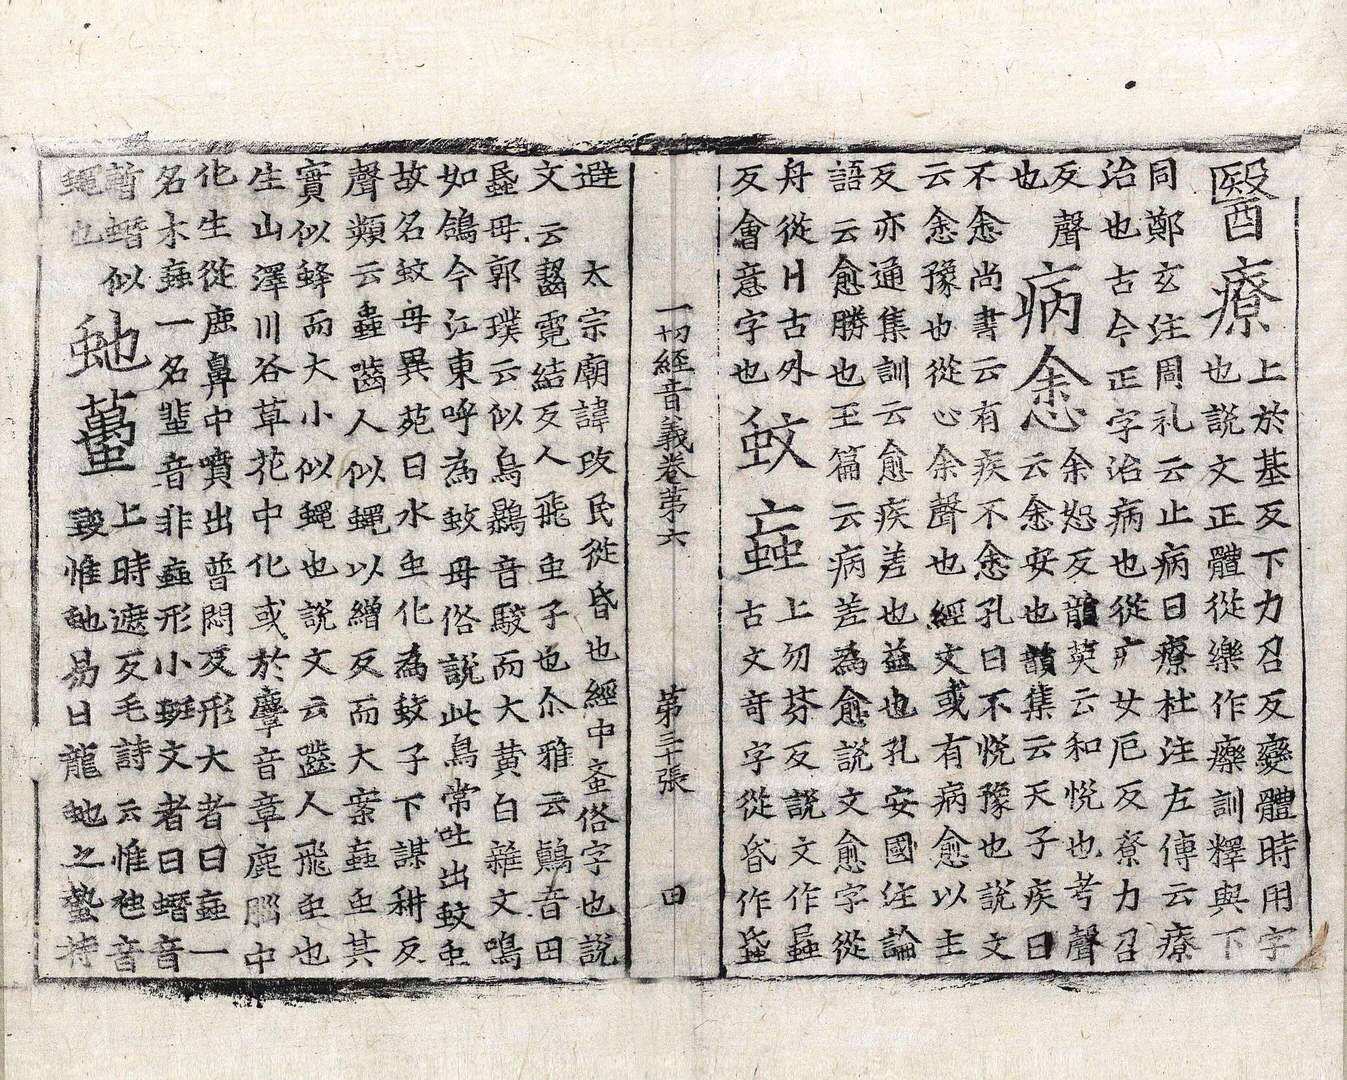 醫療上於基反下力召反變體時用字
也說文正體從樂作𤻲訓釋與下
同鄭玄注周礼云止病曰療杜注左傳云療
治也古今正字治病也從疒女厄反尞力召
反聲
也
病悆余恕反韻英云和悅也考聲
云悆安也韻集云天子疾曰
不悆尚書云有疾不悆孔曰不悅豫也說文
云悆豫也從心余聲也經文或有病愈以主
反亦通集訓云愈疾差也益也孔安國注論
語云愈勝也玉篇云病差為愈說文愈字從
舟從刂古外
反會意字也
蚊䖟上勿芬反說文作蟁
古文奇字從昏作䘇
一切經音義卷第六 第三十張 田
避 太宗廟諱改民從昏也經中蚉俗字也說
文云齧霓結反人飛虫子也尒雅云鷏音田
蟁母郭璞云似烏鸔音駮而大黄白雜文鳴
如鴿今江東呼為蚊母俗說此鳥常吐出蚊虫
故名蚊母異苑曰水虫化為蚊子下謀耕反
聲類云䖟齒人似蠅以繒反而大案䖟虫其
實似蜂而大小似蠅也說文云齧人飛虫也
生山澤川谷草花中化或於麞音章鹿腦中
化生從鹿鼻中噴出普悶反形大者曰䖟一
名木䖟一名蜚音非䖟形小斑文者曰音
暫似
蠅也
虵蠆上時遮反毛詩云惟虺音
毀惟虵易曰龍虵之蟄持